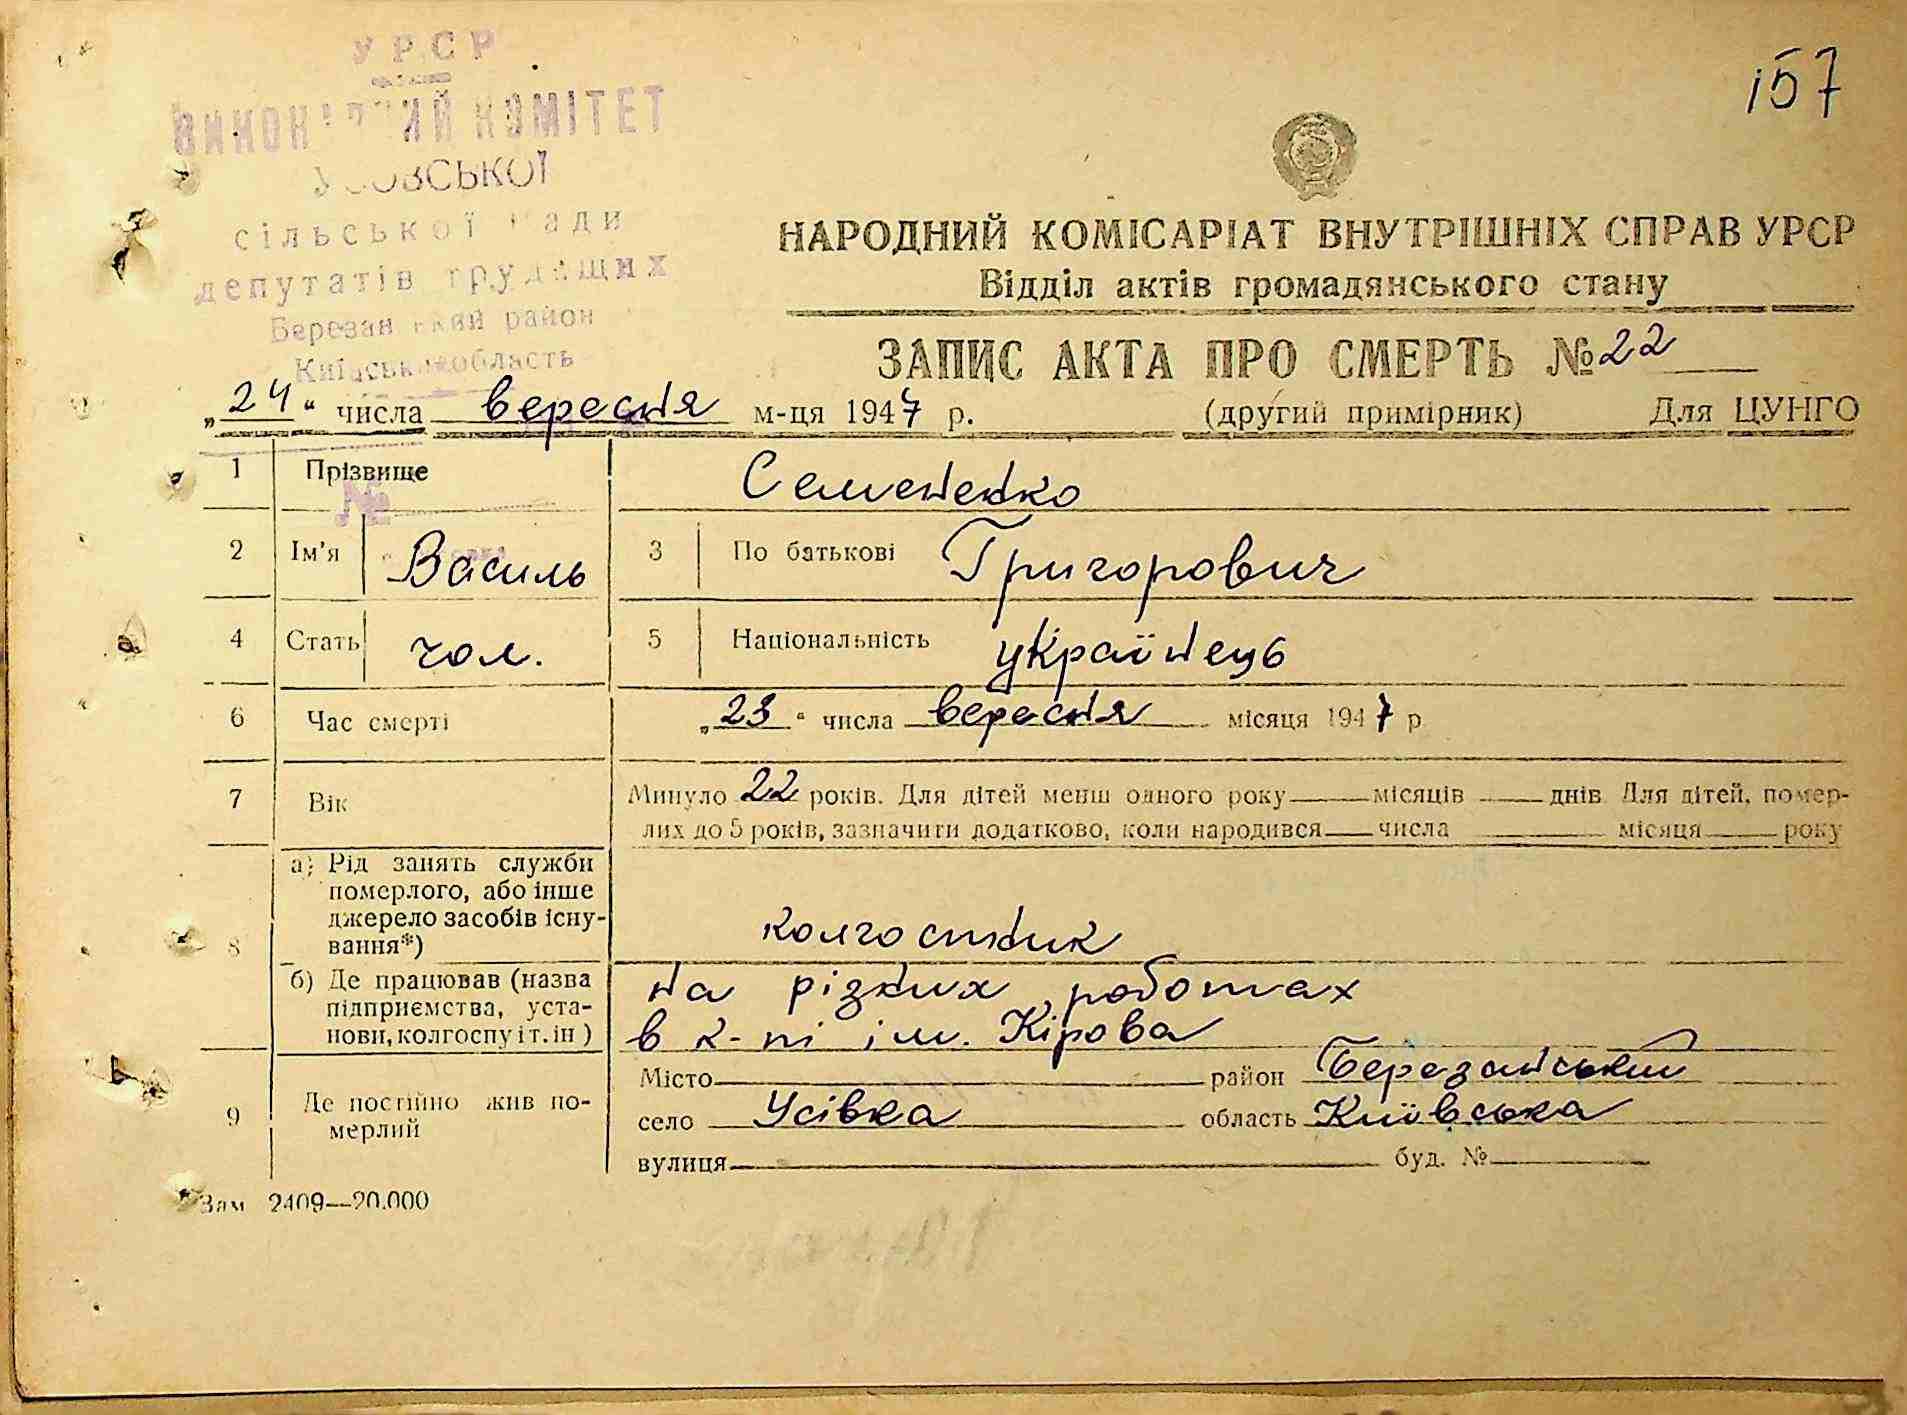 157
УРСР
ВИКОНАВЧИЙ КОМІТЕТ
УСОВСЬКОЇ
сільської ради
депутатів трудящих
Березанський район
Київська область
№
НАРОДНИЙ КОМІСАРІАТ ВНУТРІШНІХ СПРАВ УРСР
Відділ актів громадянського стану
ЗАПИС АКТА ПРО СМЕРТЬ № 22
„24“ числа вересня м-ця 1947 р. (другий примірник) Для ЦУНГО
1 Прізвище Семененко
2 Ім'я Василь 3 По батькові Григорович
4 Стать чол. 5 Національність українець
6 Час смерті „23“ числа вересня місяця 1947 р
7 Вік Минуло 22 років. Для дітей менш одного року місяців днів Для дітей, помер-
лих до 5 років, зазначити додатково, коли народився числа місяця року
8 а) Рід занять служби
померлого, або інше
джерело засобів існу-
вання*) колгоспник
б) Де працював (назва
підприємства, уста-
нови, колгоспу і т. ін) на різних роботах
в к-пі ім. Кірова
9 Де постійно жив по-
мерлий
Місто район Березанський
село Усівка область Київська
вулиця буд. №
Зам 2409—20.000